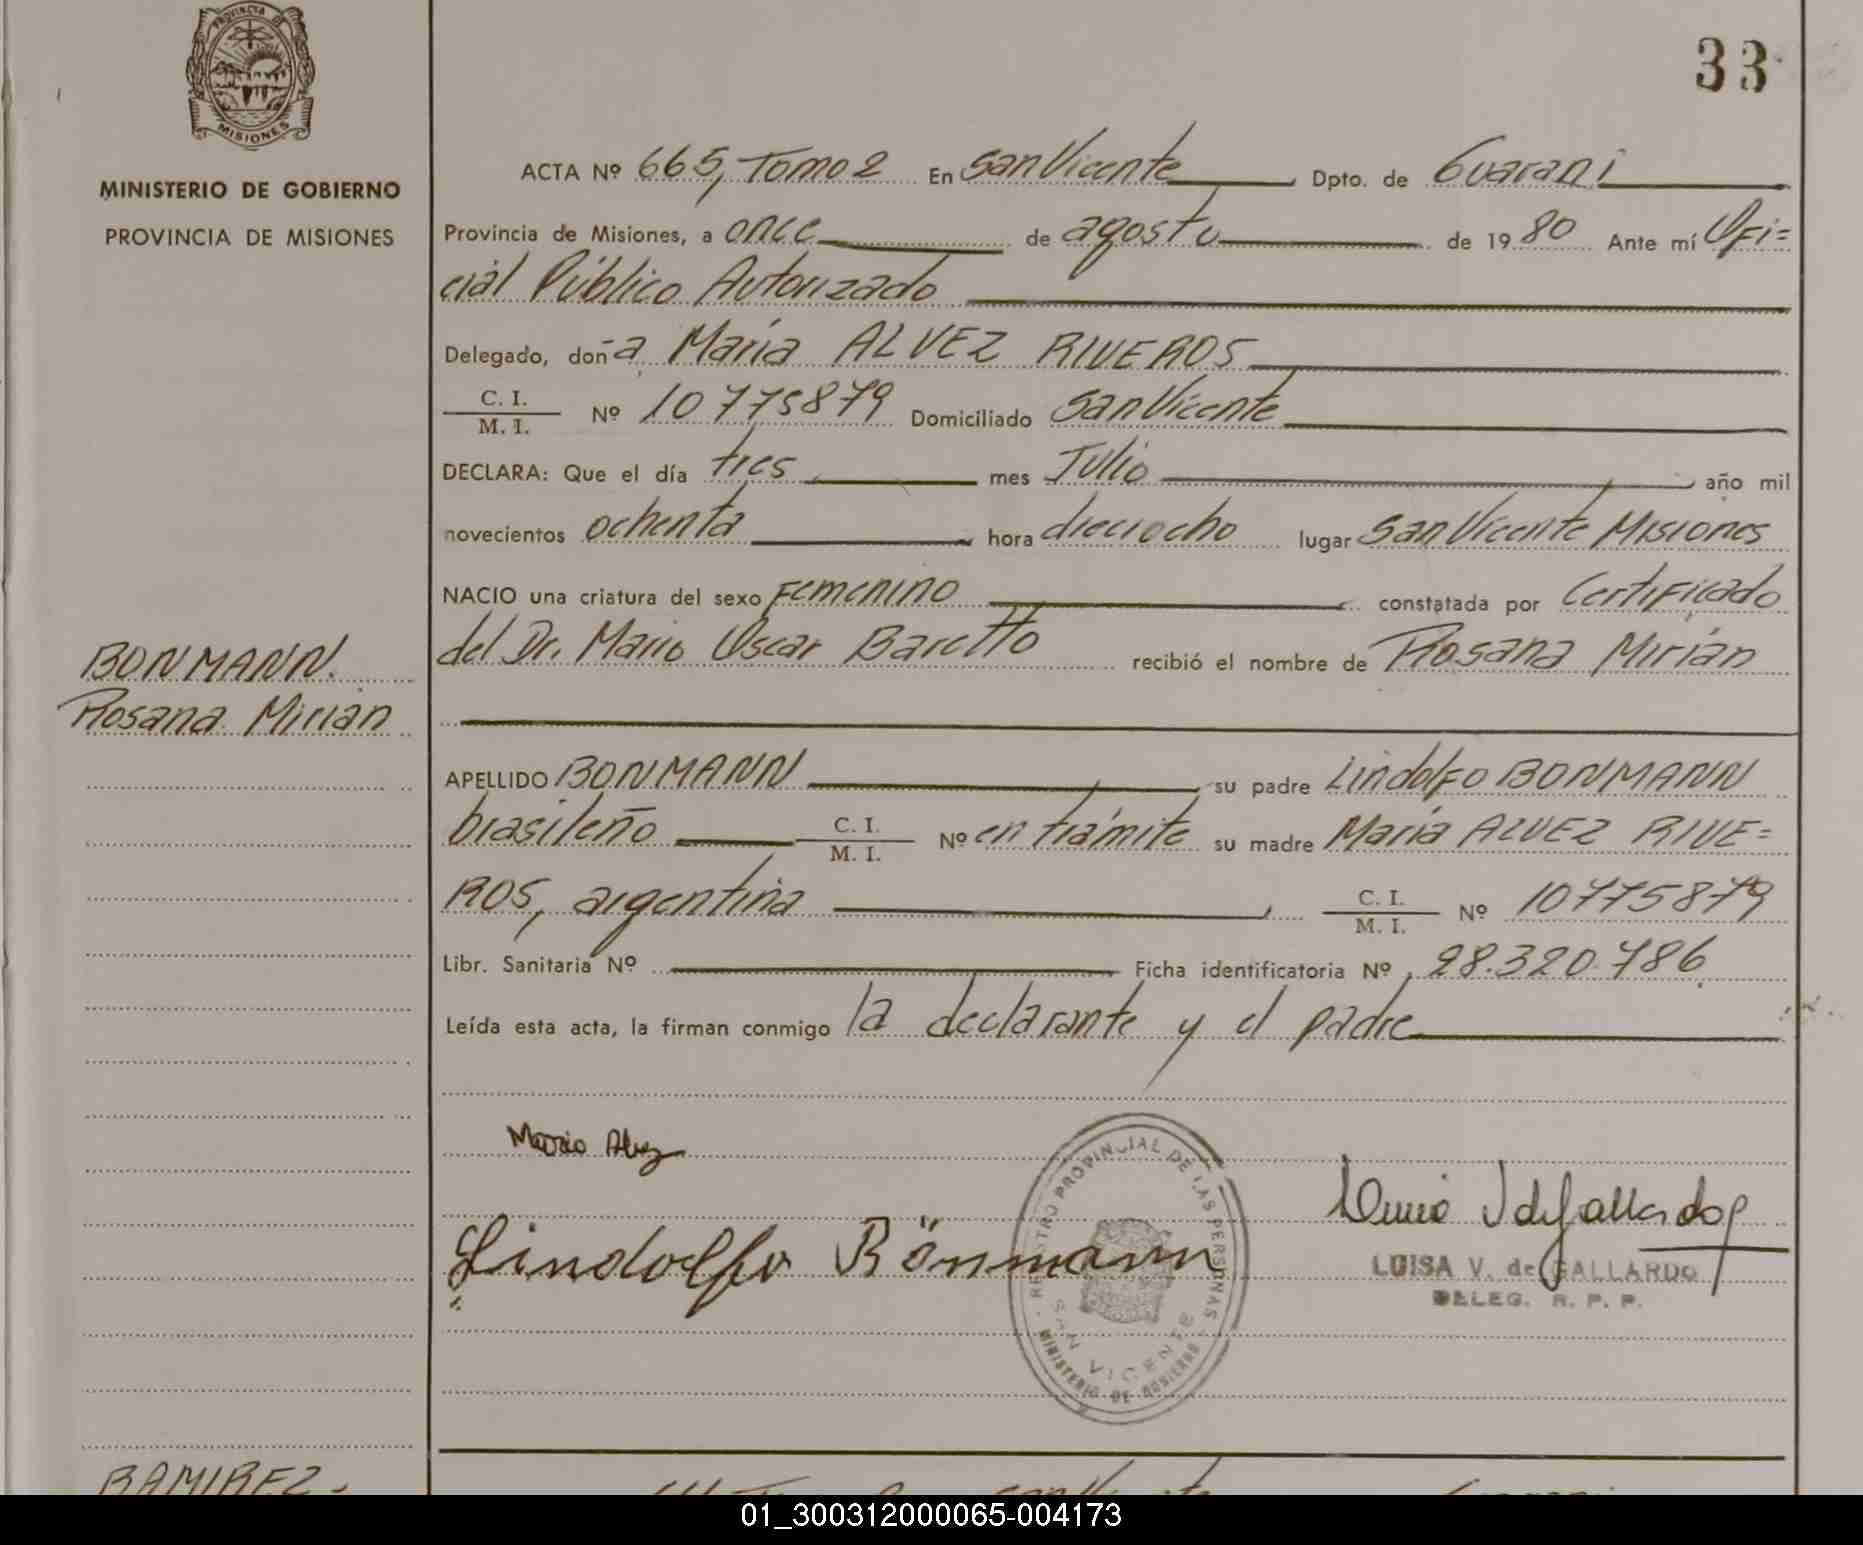 PROVINCIA DE
MISIONES
MINISTERIO DE GOBIERNO
PROVINCIA DE MISIONES
33
ACTA Nº 665, Tomo 2 En San Vicente Dpto. de Guaraní
Provincia de Misiones, a once de agosto de 1980 Ante mí Ofi=
cial Público Autorizado
Delegado, doña María ALVEZ RIVEROS
C. I.
M. I. Nº 10775879 Domiciliado San Vicente
DECLARA: Que el día tres mes Julio año mil
novecientos ochenta hora dieciocho lugar San Vicente Misiones
NACIO una criatura del sexo Femenino constatada por Certificado
del Dr. Mario Oscar Baretto recibió el nombre de Rosana Mirian
BONMANN.
Rosana Mirian
APELLIDO BONMANN su padre Lindolfo BONMANN
brasileño C. I.
M. I. Nº en trámite su madre María ALVEZ RIVE=
ROS, argentina C. I.
M. I. Nº 10775879
Libr. Sanitaria Nº Ficha identificatoria Nº 28.320.786
Leída esta acta, la firman conmigo la declarante y el padre
Lindolfo Bönmann
REGISTRO PROVINCIAL DE LAS PERSONAS
SAN VICENTE
MINISTERIO DE GOBIERNO
LUISA V. de GALLARDO
DELEG. R. P. P.
RAMIREZ
01_300312000065-004173